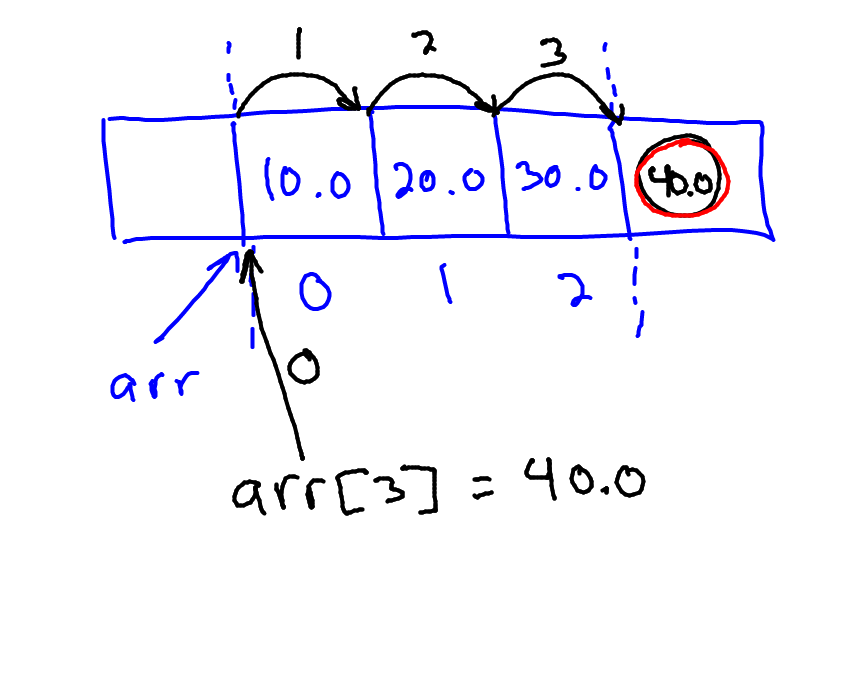 1 2 3
10.0 20.0 30.0 40.0
0 1 2
0
arr
arr[3] = 40.0